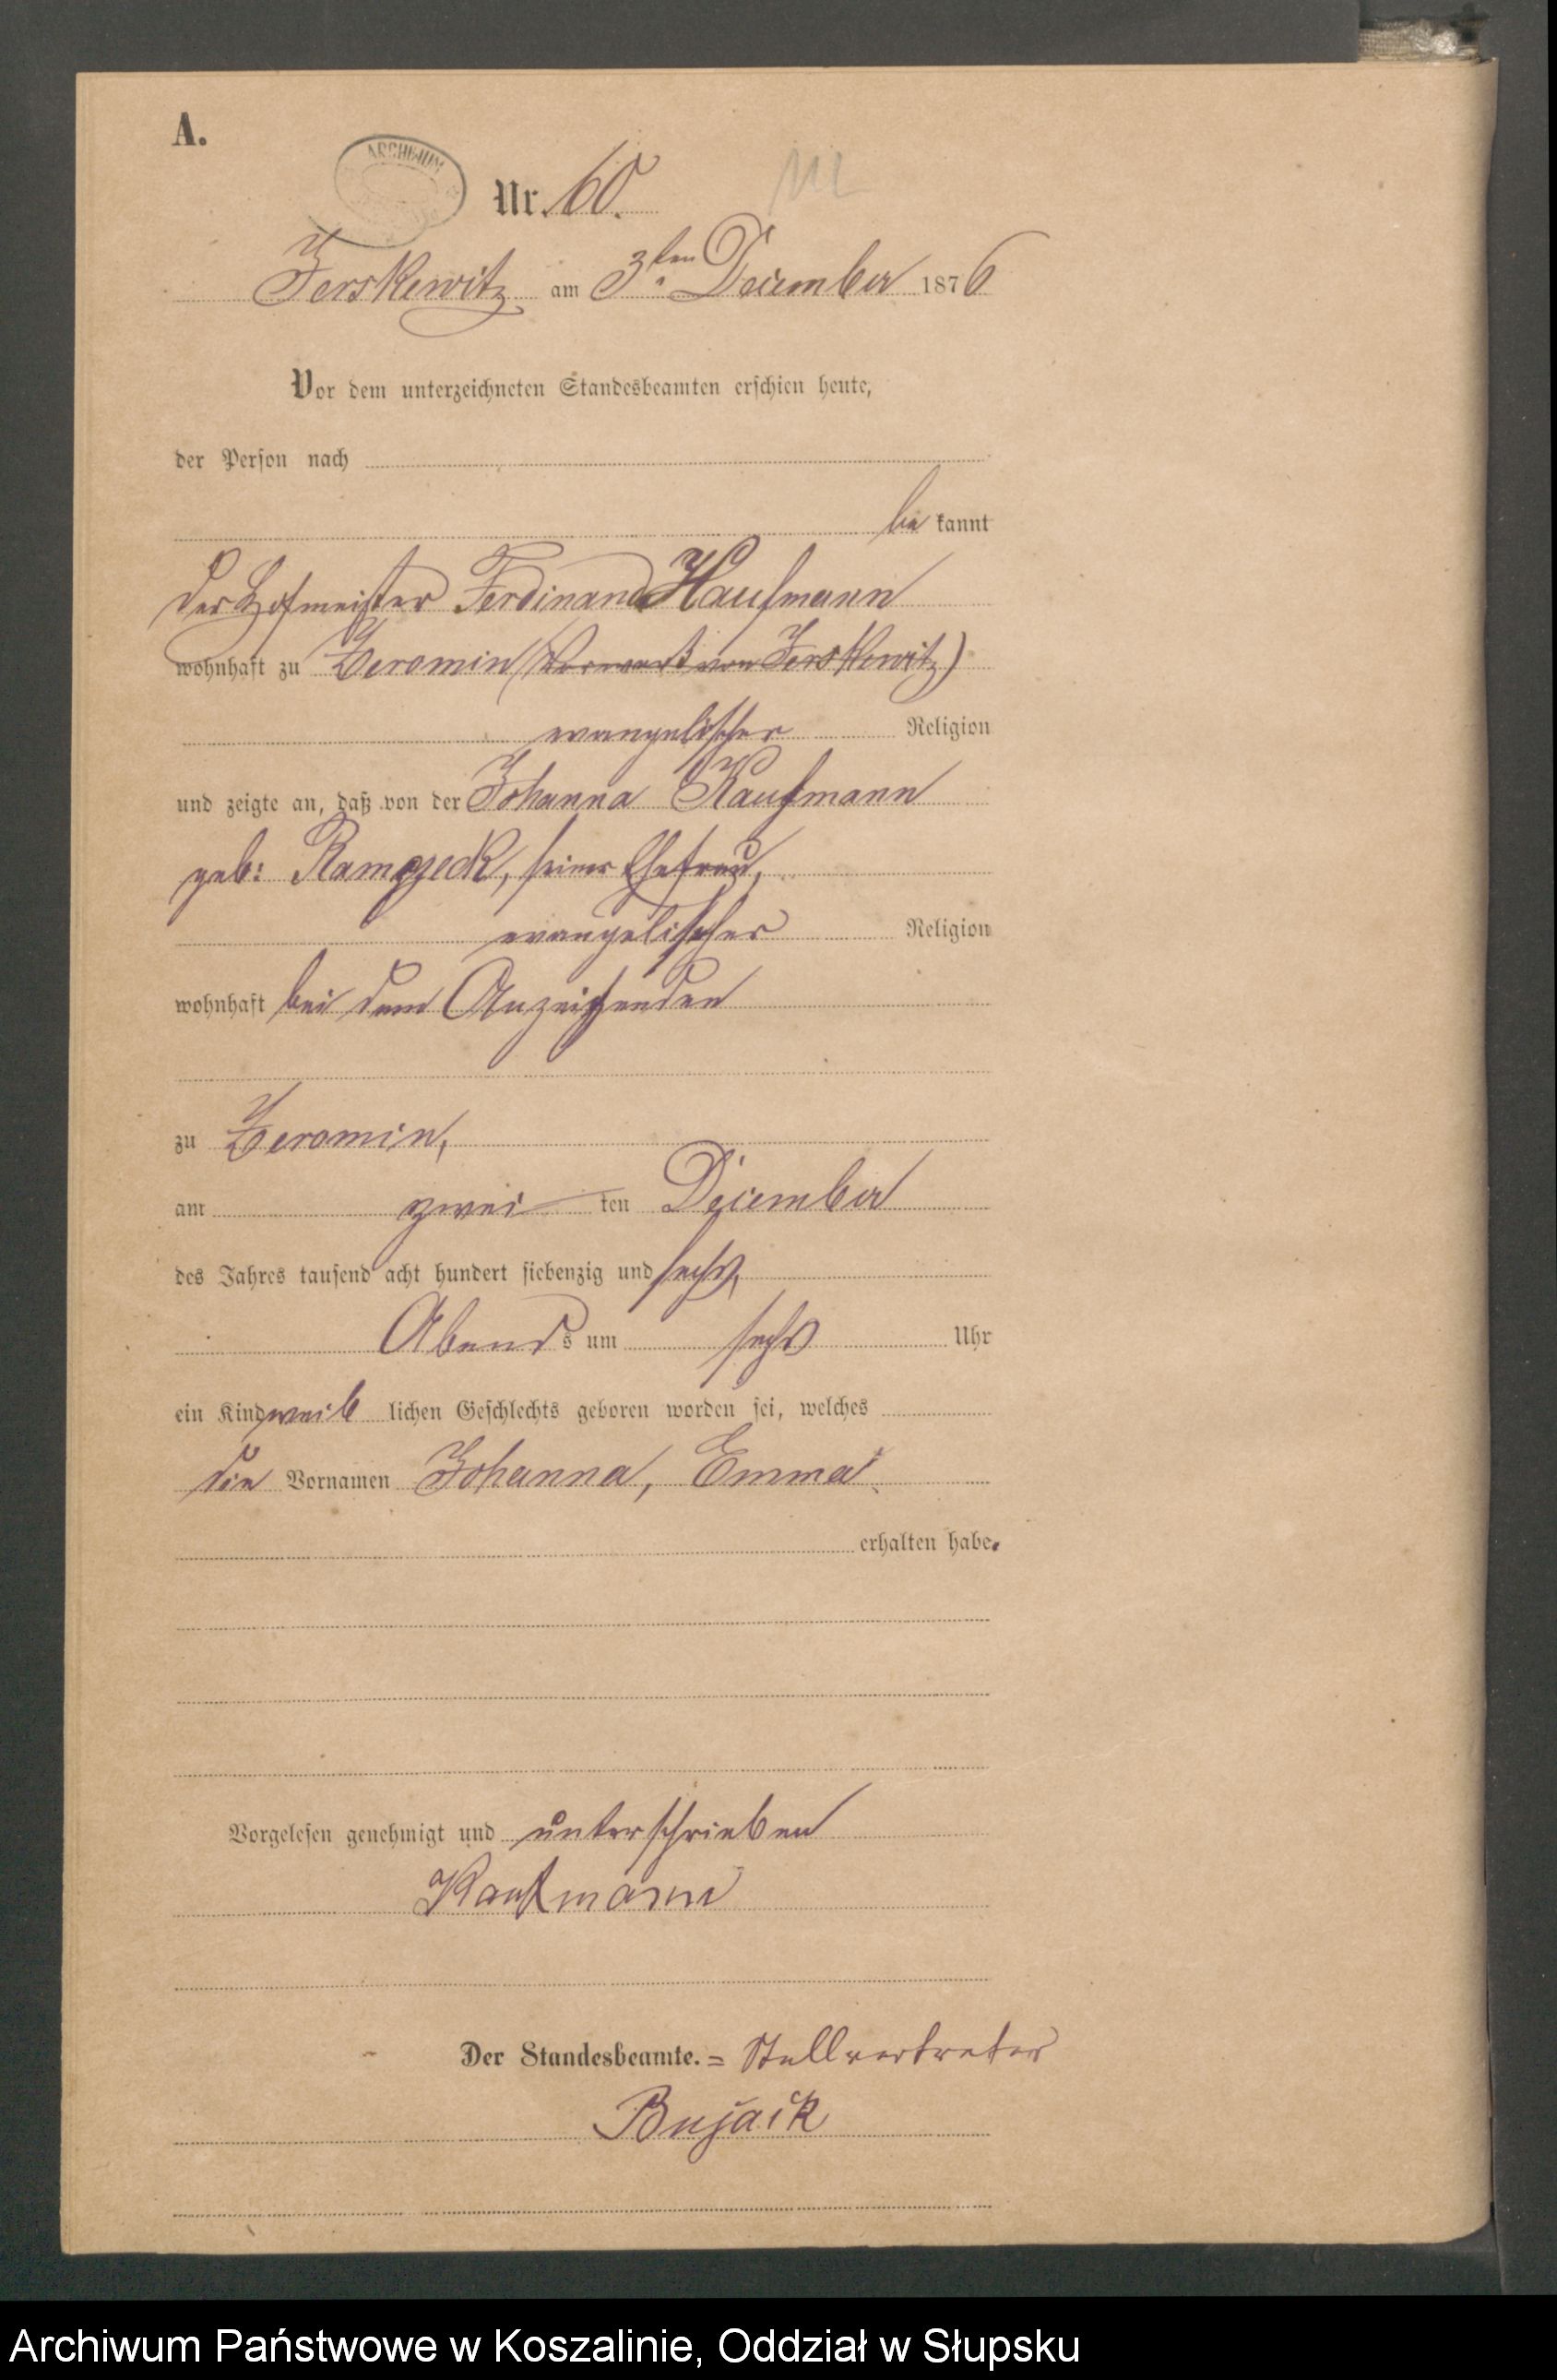 A.
ARCHIWUM
Nr. 60.
Jerskewitz am 3ten December 1876
Vor dem unterzeichneten Standesbeamten erschien heute,
der Person nach
be kannt
der Hofmeister Ferdinand Kaufmann
wohnhaft zu Zeromin (Vorwerk von Jerskewitz)
evangelischer Religion
und zeigte an, daß von der Johanna Kaufmann
geb: seiner Ehefrau,
evangelischer Religion
wohnhaft bei dem Anzeigenden
zu Zeromin,
am zwei ten December
des Jahres tausend acht hundert siebenzig und sechs,
Abend s um sechs Uhr
ein Kind weib lichen Geschlechts geboren worden sei, welches
die Vornamen Johanna, Emma
erhalten habe.
Vorgelesen genehmigt und unterschrieben
Kaufmann
Der Standesbeamte. = Stellvertreter
Bujack
Archiwum Państwowe w Koszalinie, Oddział w Słupsku